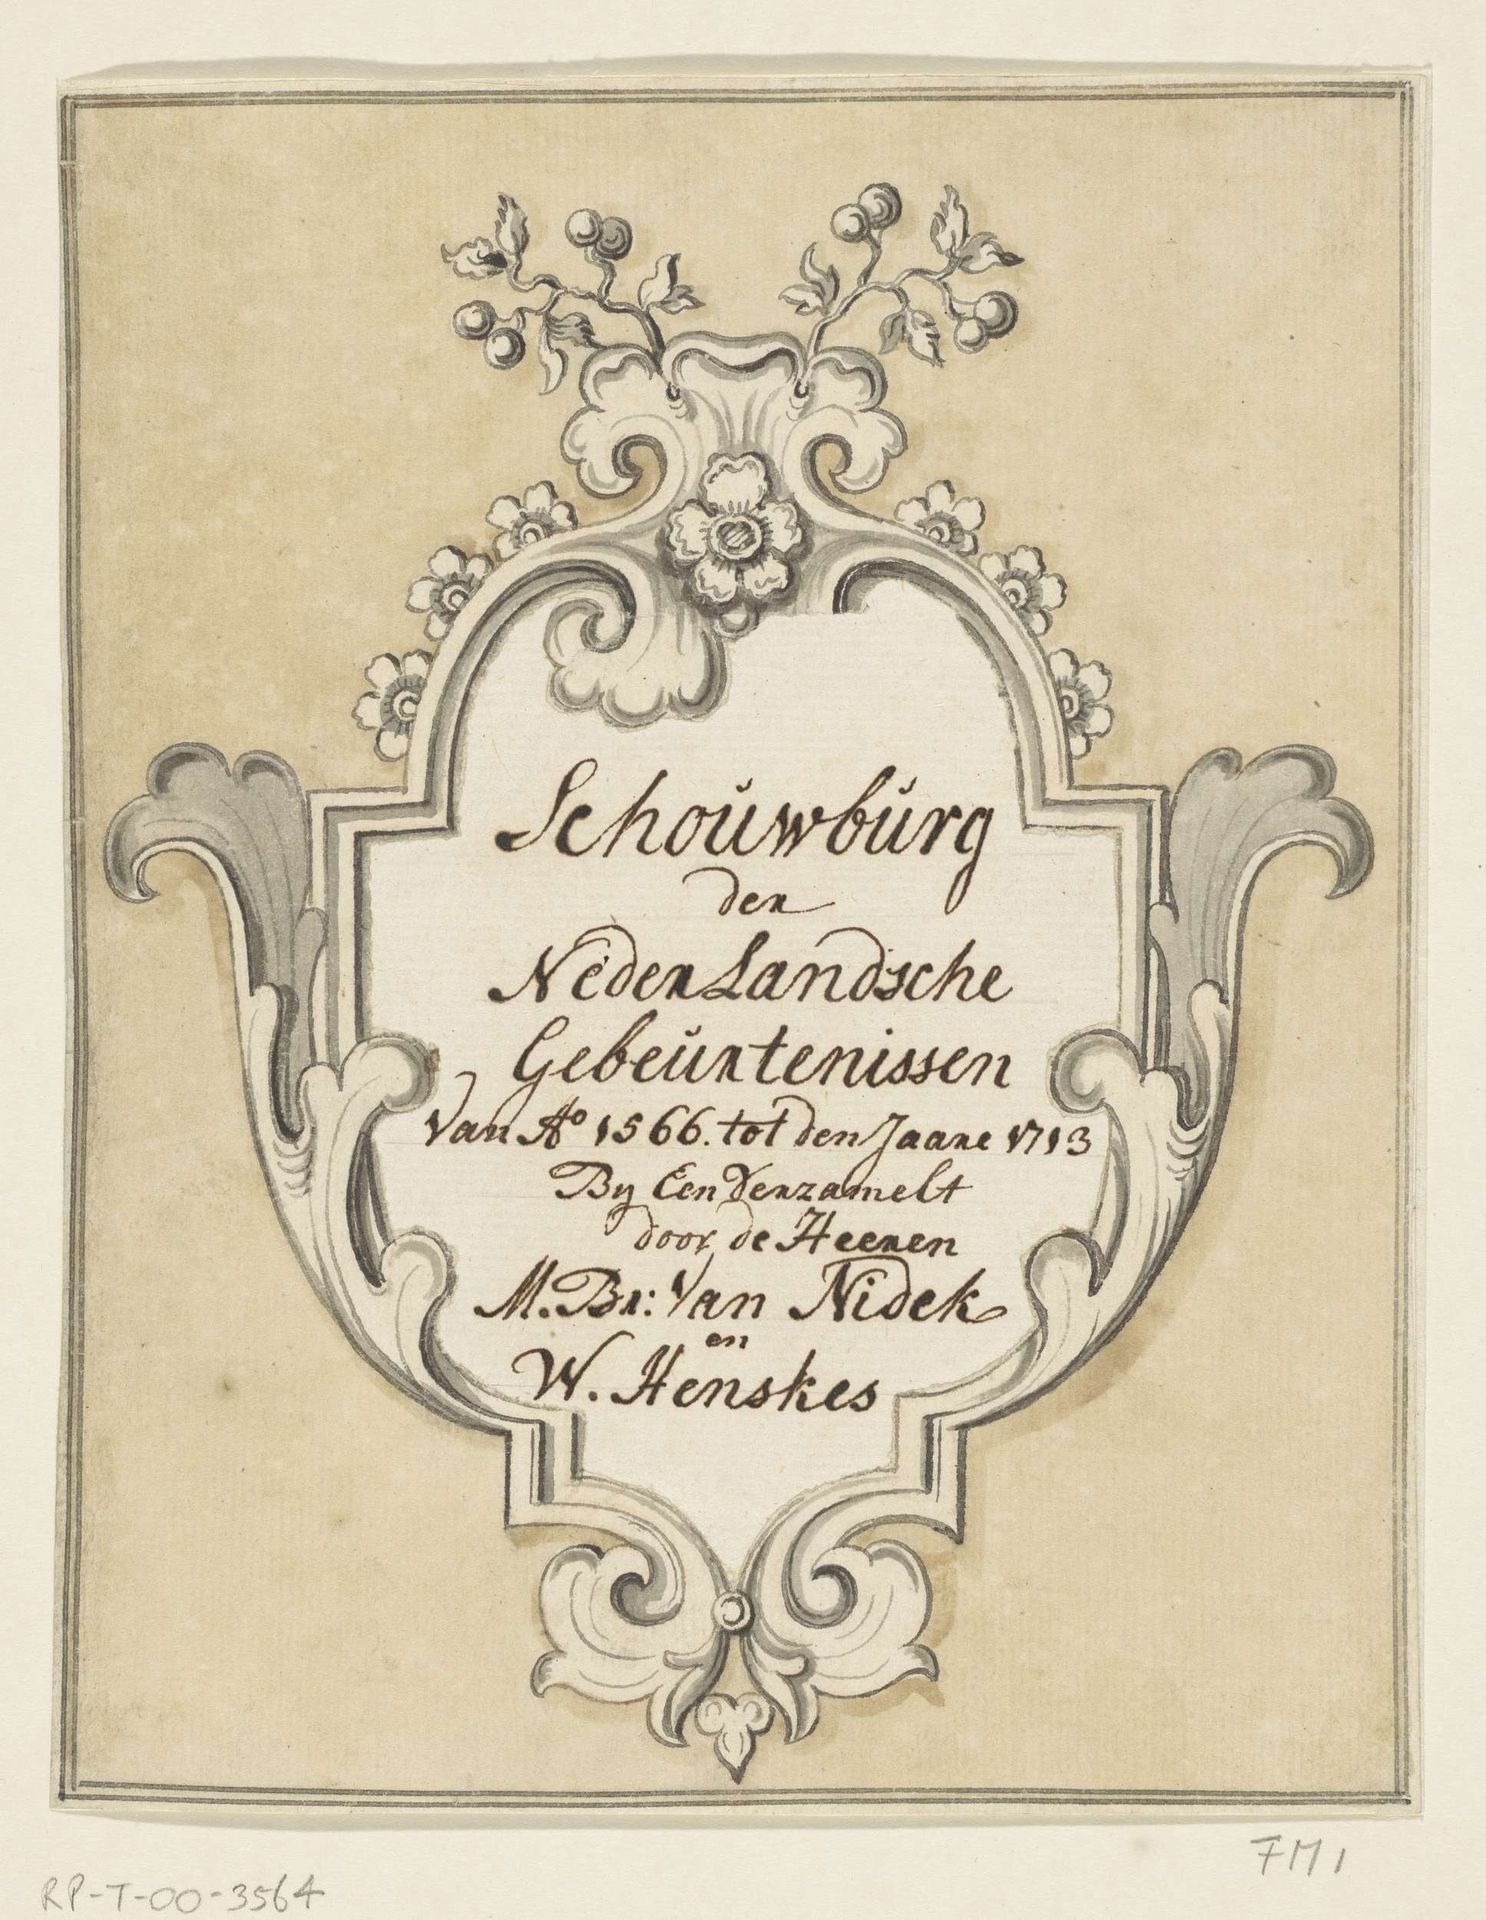 Schouwburg
der
NederLandsche
Gebeurtenissen
Van Aº 1566. tot den Jaare 1713
By Een Verzamelt
door de Heeren
M. Br: Van Nidek
en
W. Henskes
FM 1
RP-T-00-3564